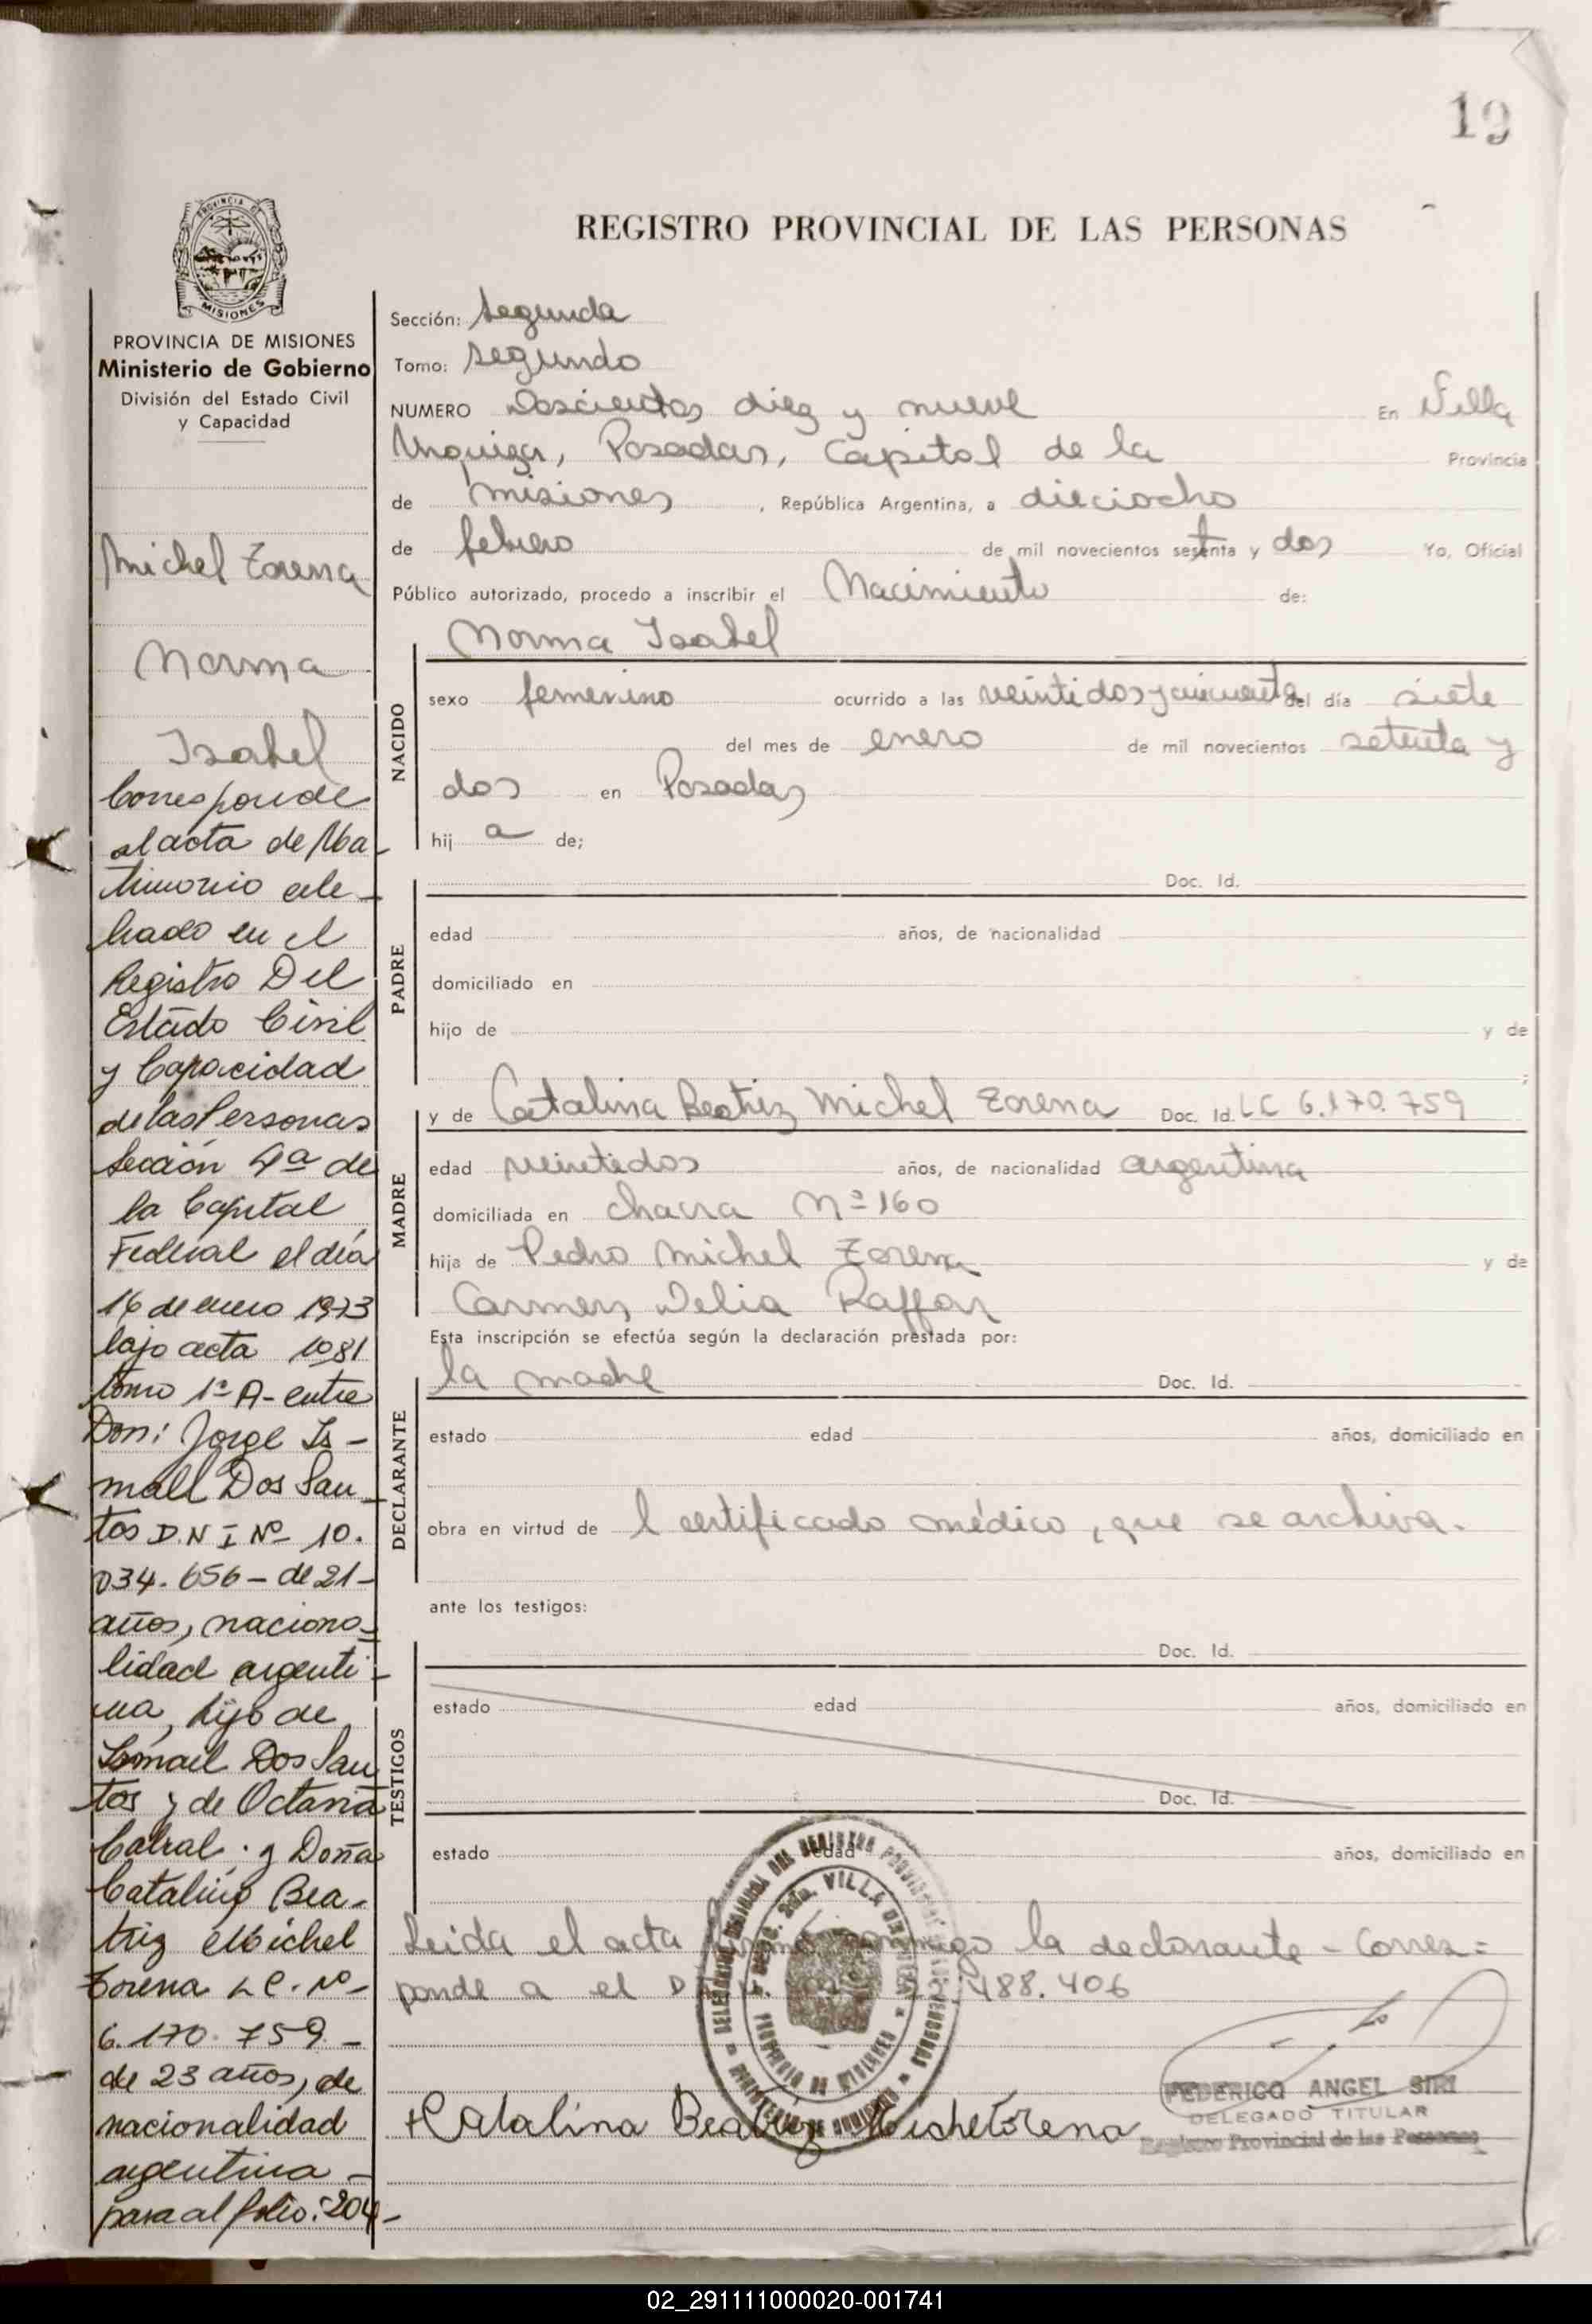 19
REGISTRO PROVINCIAL DE LAS PERSONAS
PROVINCIA DE MISIONES
Ministerio de Gobierno
División del Estado Civil
y Capacidad
Michel Torena
Norma
Isabel
Corresponde
al acta de Ma-
trimonio cele-
brado en el
Registro Del
Estado Civil
y Capacidad
de las Personas
Sección 4ª de
la Capital
Federal el día
16 de enero 1973
bajo acta 1081
tomo 1º A- entre
Don: Jorge Is-
mail Dos San-
tos D.N I Nº 10.
034.656 - de 21-
años, naciona-
lidad argenti-
na, hijo de
Ismail Dos San
tos y de Octavia
Cabral. y Doña
Catalina Bea-
triz Michel
Torena L C. Nº
6.170.759 -
de 23 años, de
nacionalidad
argentina -
pasa al folio: 204-
Sección: Segunda
Tomo: segundo
NUMERO Doscientos diez y nueve En Villa
Urquiza, Posadas, Capital de la Provincia
de Misiones , República Argentina, a dieciocho
de febrero de mil novecientos setenta y dos Yo, Oficial
Público autorizado, procedo a inscribir el Nacimiento de:
NACIDO
Norma Isabel
sexo femenino ocurrido a las veintidos y cincuenta del día siete
del mes de enero de mil novecientos setenta y
dos en Posadas
hij a de;
PADRE
Doc. Id.
edad años, de nacionalidad
domiciliado en
hijo de y de
MADRE
y de Catalina Beatriz Michel Torena Doc. Id. LC 6.170.759
edad veintidos años, de nacionalidad argentina
domiciliada en chacra Nº 160
hija de Pedro Michel Torena y de
Carmen Delia Raffor
Esta inscripción se efectúa según la declaración prestada por:
DECLARANTE
la madre Doc. Id.
estado edad años, domiciliado en
obra en virtud de l certificado médico, que se archiva.
ante los testigos:
TESTIGOS
Doc. Id.
estado edad años, domiciliado en
Doc. Id.
estado edad años, domiciliado en
Leida el acta firmó conmigo la declarante - Corres=
ponde a el D 488.406
Catalina Beatriz Michel Torena
FEDERICO ANGEL SIRI
DELEGADO TITULAR
Registro Provincial de las Personas
02_291111000020-001741